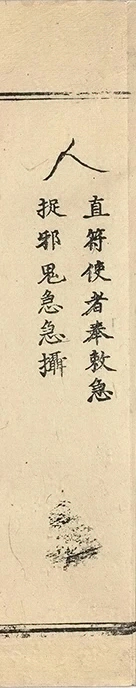 人
直符使者奉敕急
捉邪鬼急急攝